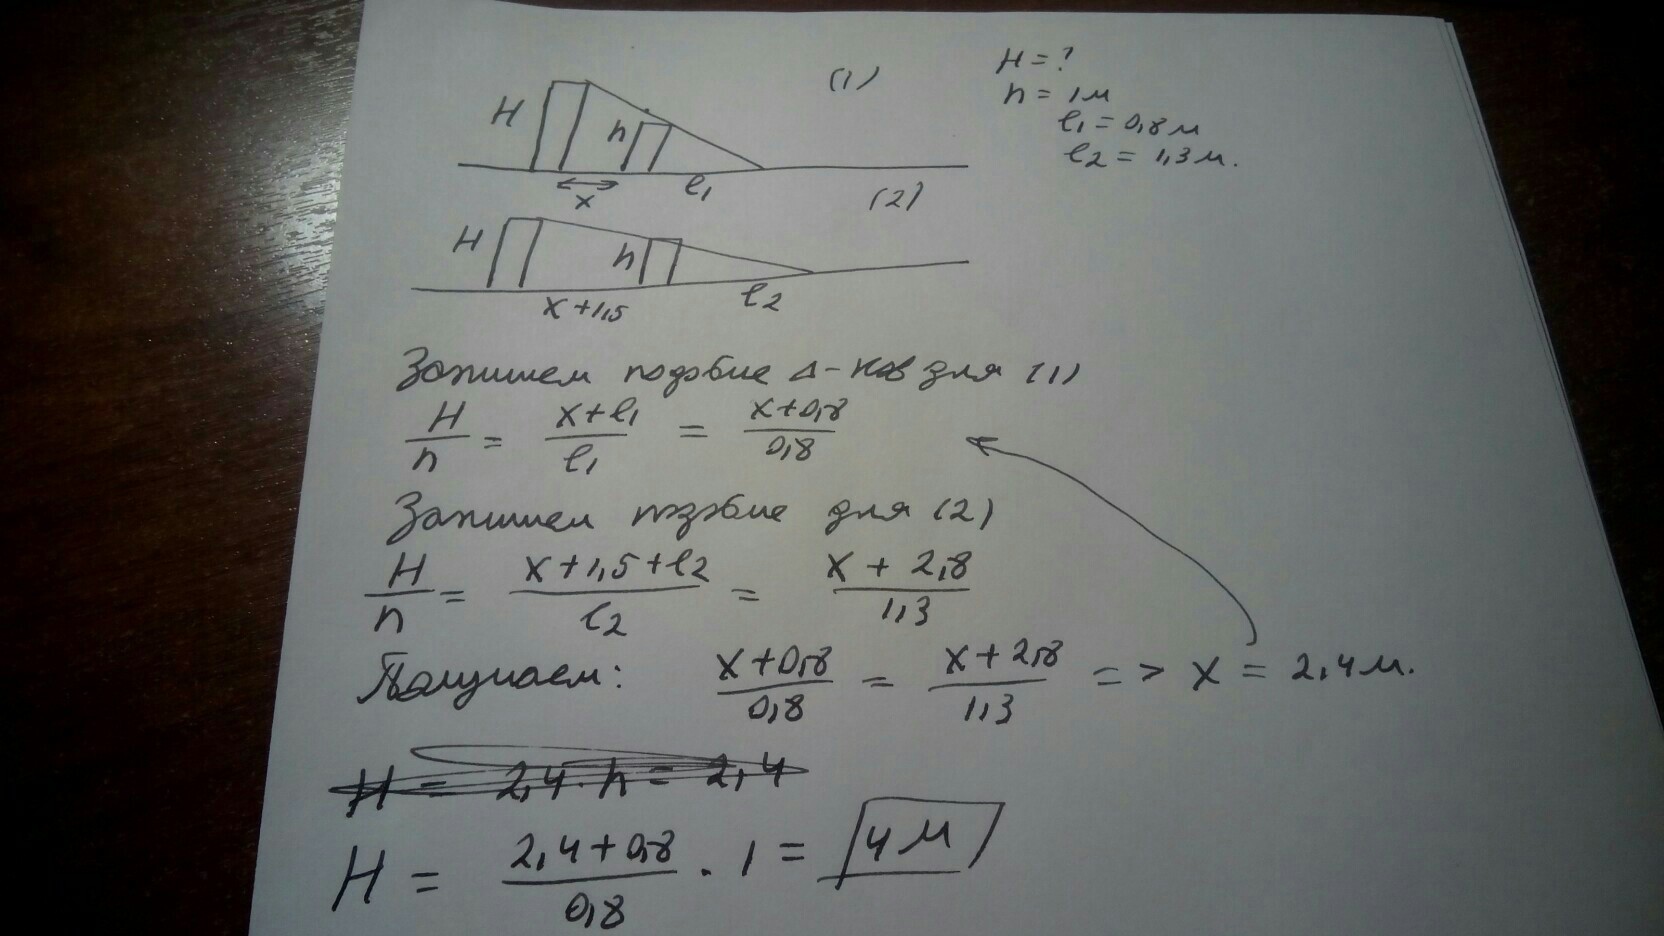 (1)
H = ?
h = 1 м
l₁ = 0,8 м
l₂ = 1,3 м.
H
h
x
l₁
(2)
H
h
x + 1,5
l₂
Запишем подобие Δ-ков для (1)
H/h = (x + l₁)/l₁ = (x + 0,8)/0,8
Запишем подобие для (2)
H/h = (x + 1,5 + l₂)/l₂ = (x + 2,8)/1,3
Получаем: (x + 0,8)/0,8 = (x + 2,8)/1,3 => x = 2,4 м.
H = 2,4 · h = 2,4
H = (2,4 + 0,8)/0,8 · 1 = 4 м